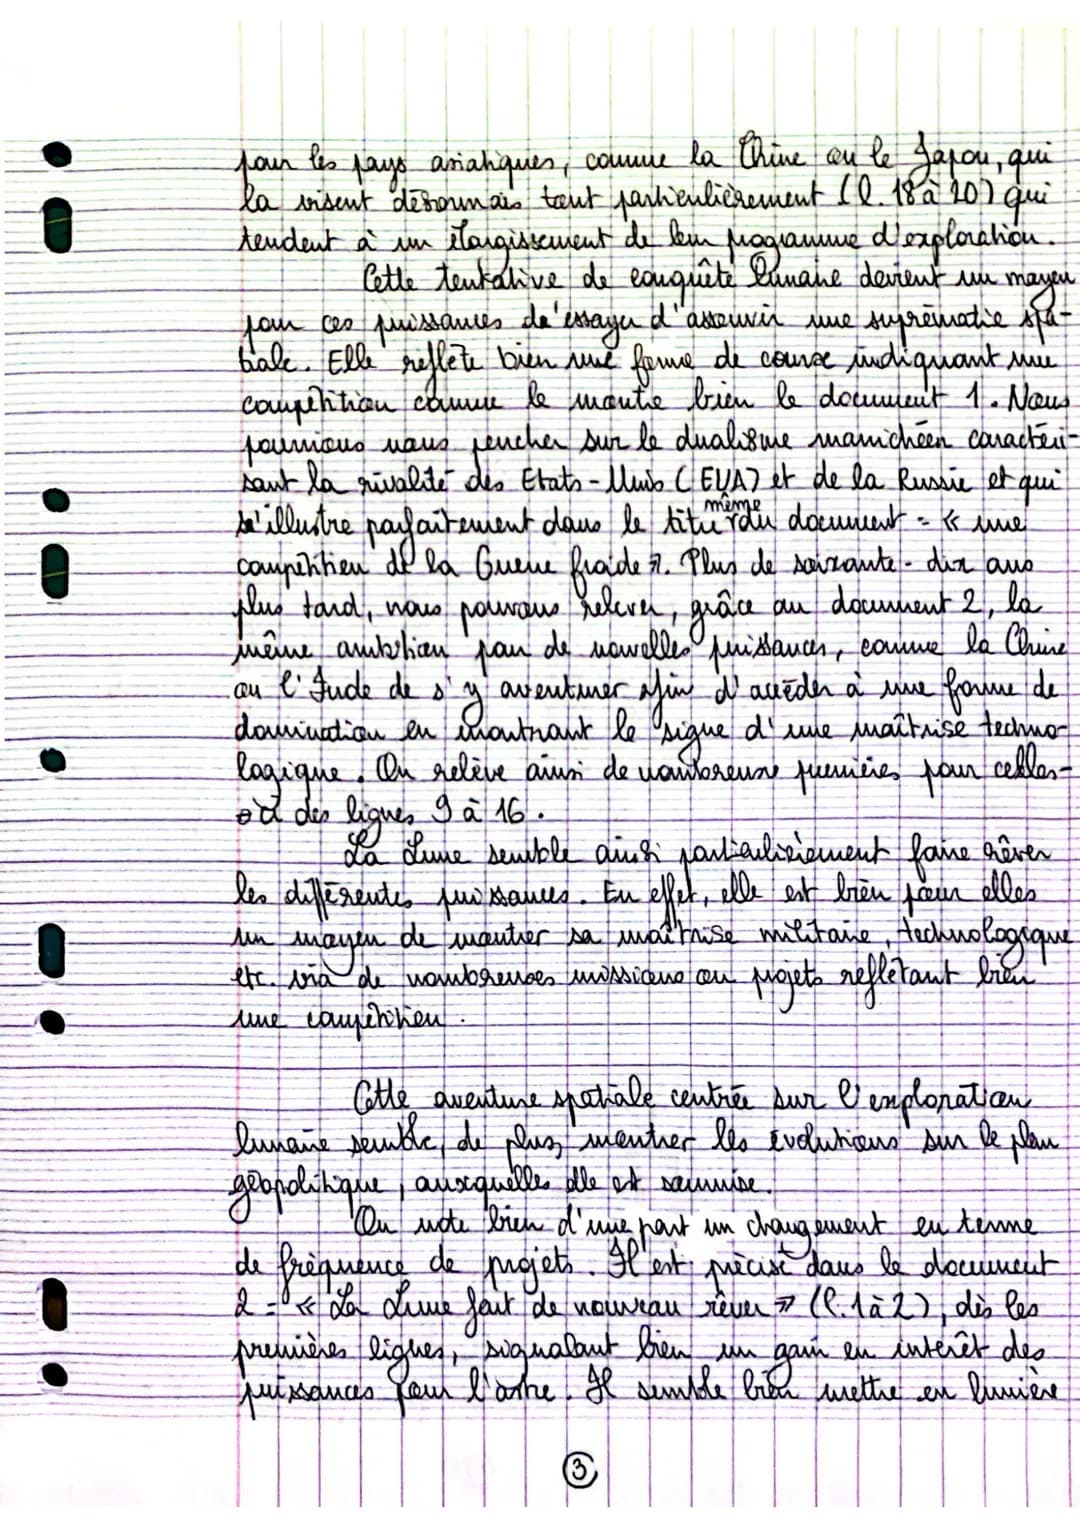 pour les pays asiatiques, comme la Chine ou le Japon, qui
la visent désormais tout particulièrement (l. 18 à 20) qui
tendent à un élargissement de leur programme d'exploration.
Cette tentative de conquête lunaire devient un moyen
pour ces puissances d'essayer d'assouvir une suprématie spa-
tiale. Elle reflète bien une forme de course indiquant une
compétition comme le montre bien le document 1. Nous
pourrions nous pencher sur le dualisme manichéen caractéri-
sant la rivalité des Etats-Unis (EUA) et de la Russie et qui
s'illustre parfaitement dans le titre même du document : « une
compétition de la Guerre froide ». Plus de soixante-dix ans
plus tard, nous pouvons relever, grâce au document 2, la
même ambition par de nouvelles puissances, comme la Chine
ou l'Inde de s'y aventurer afin d'accéder à une forme de
domination en montrant le signe d'une maîtrise techno-
logique. On relève ainsi de nombreuse premières pour celles-
ci des lignes 9 à 16.
La Lune semble ainsi particulièrement faire rêver
les différentes puissances. En effet, elle est bien pour elles
un moyen de montrer sa maîtrise militaire, technologique
etc. via de nombreuses missions ou projets reflétant bien
une compétition.
Cette aventure spatiale centrée sur l'exploration
lunaire semble, de plus, montrer les évolutions sur le plan
géopolitique, auxquelles elle est soumise.
On note bien d'une part un changement en terme
de fréquence de projets. Il est précisé dans le document
2 : « La Lune fait de nouveau rêver » (l. 1 à 2), dès les
premières lignes, signalant bien un gain en intérêt des
puissances pour l'astre. Il semble bien mettre en lumière
3